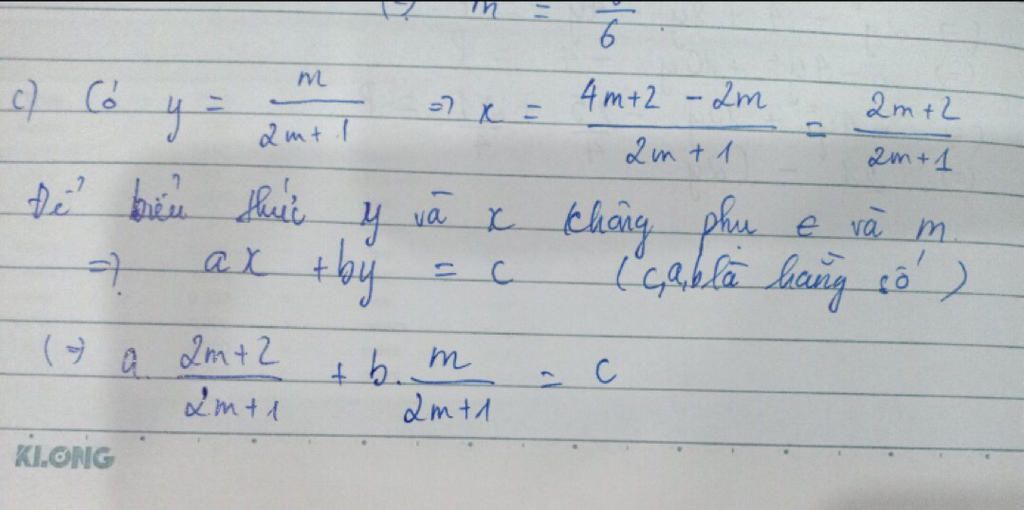 (=) m = /6
c) Có y = m/(2m+1) => x = (4m+2 - 2m)/(2m+1) = (2m+2)/(2m+1)
Để biểu thức y và x không phụ e và m.
=> ax + by = c (c,a,b là hằng số)
(=) a. (2m+2)/(2m+1) + b. m/(2m+1) = c
KLONG